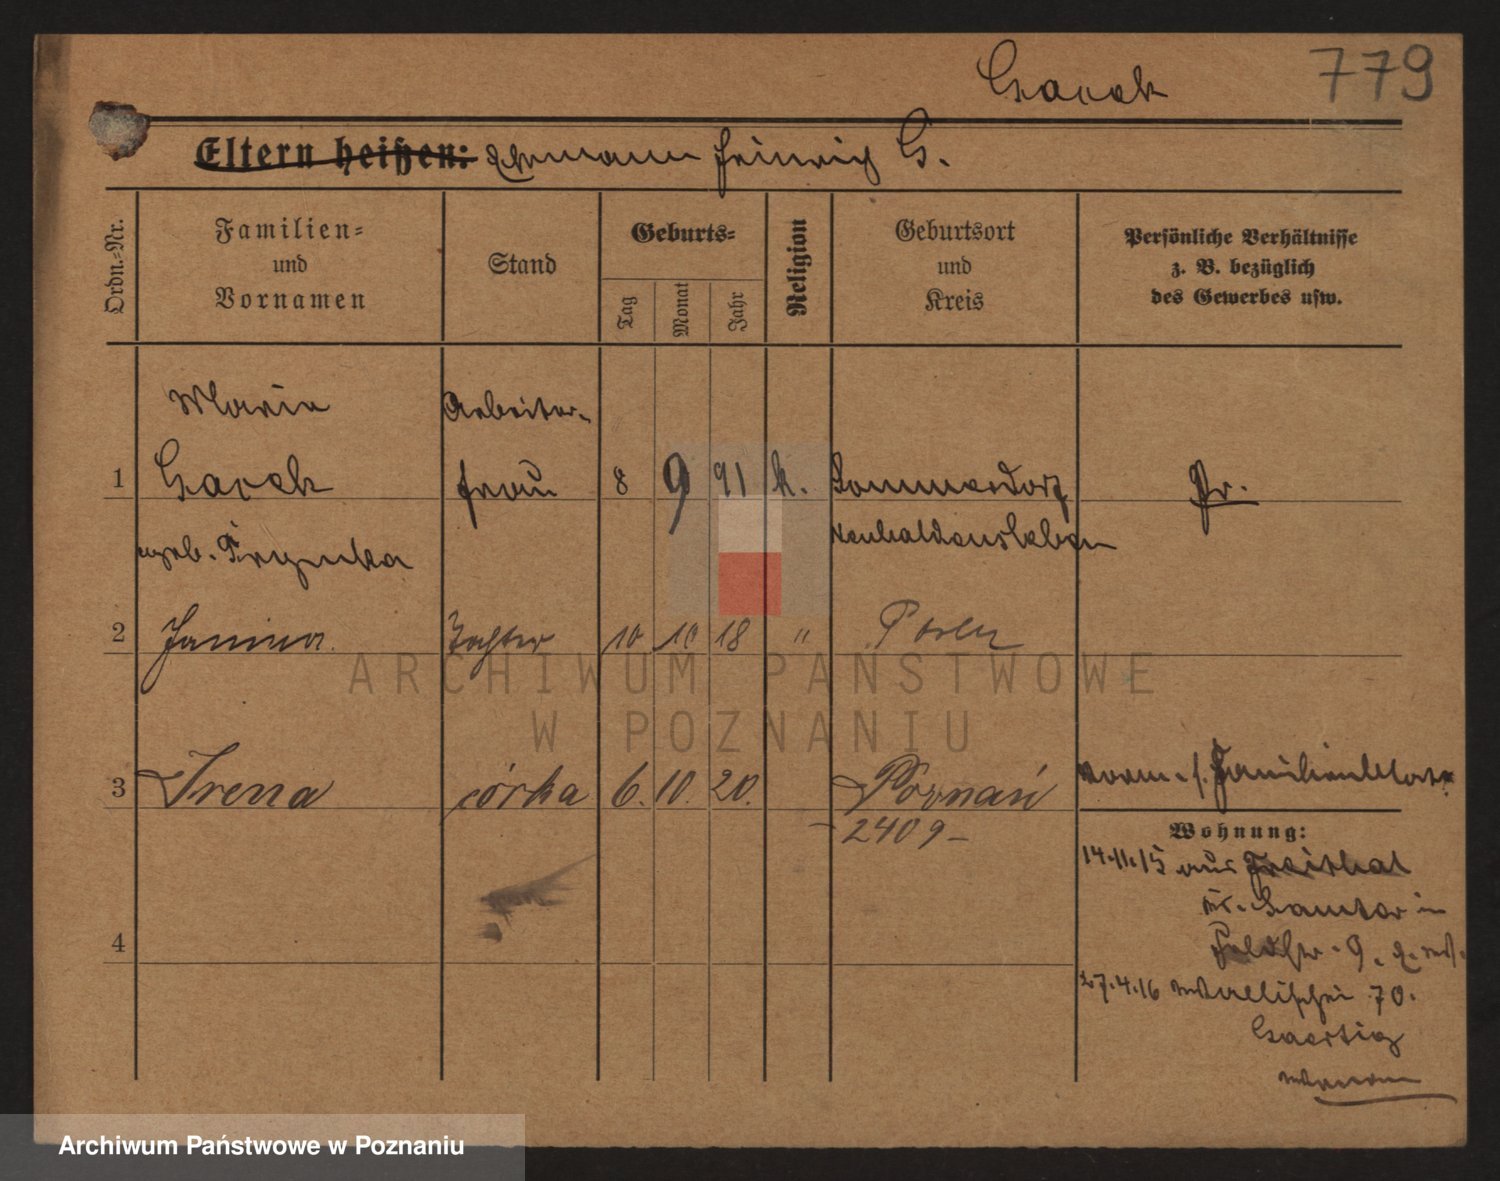 Gacek
779
Eltern heißen: Ehemann Heinrich G.
Ordn.-Nr.
Familien-
und
Vornamen
Stand
Geburts-
Tag
Monat
Jahr
Religion
Geburtsort
und
Kreis
Persönliche Verhältnisse
z. B. bezüglich
des Gewerbes usw.
Maria
Arbeiter-
1 Gacek frau 8 9 91 k. Sommersdorf Pr.
geb. Neuhaldensleben
2 Janina Tochter 10 10 18 " Posen
3 Irena córka 6. 10. 20. Poznań
Familienblatt
– 2409 –
Wohnung:
14.11.15 aus
in
9.
4
27.4.16 Wallischei 70.
ARCHIWUM PAŃSTWOWE
W POZNANIU
Archiwum Państwowe w Poznaniu